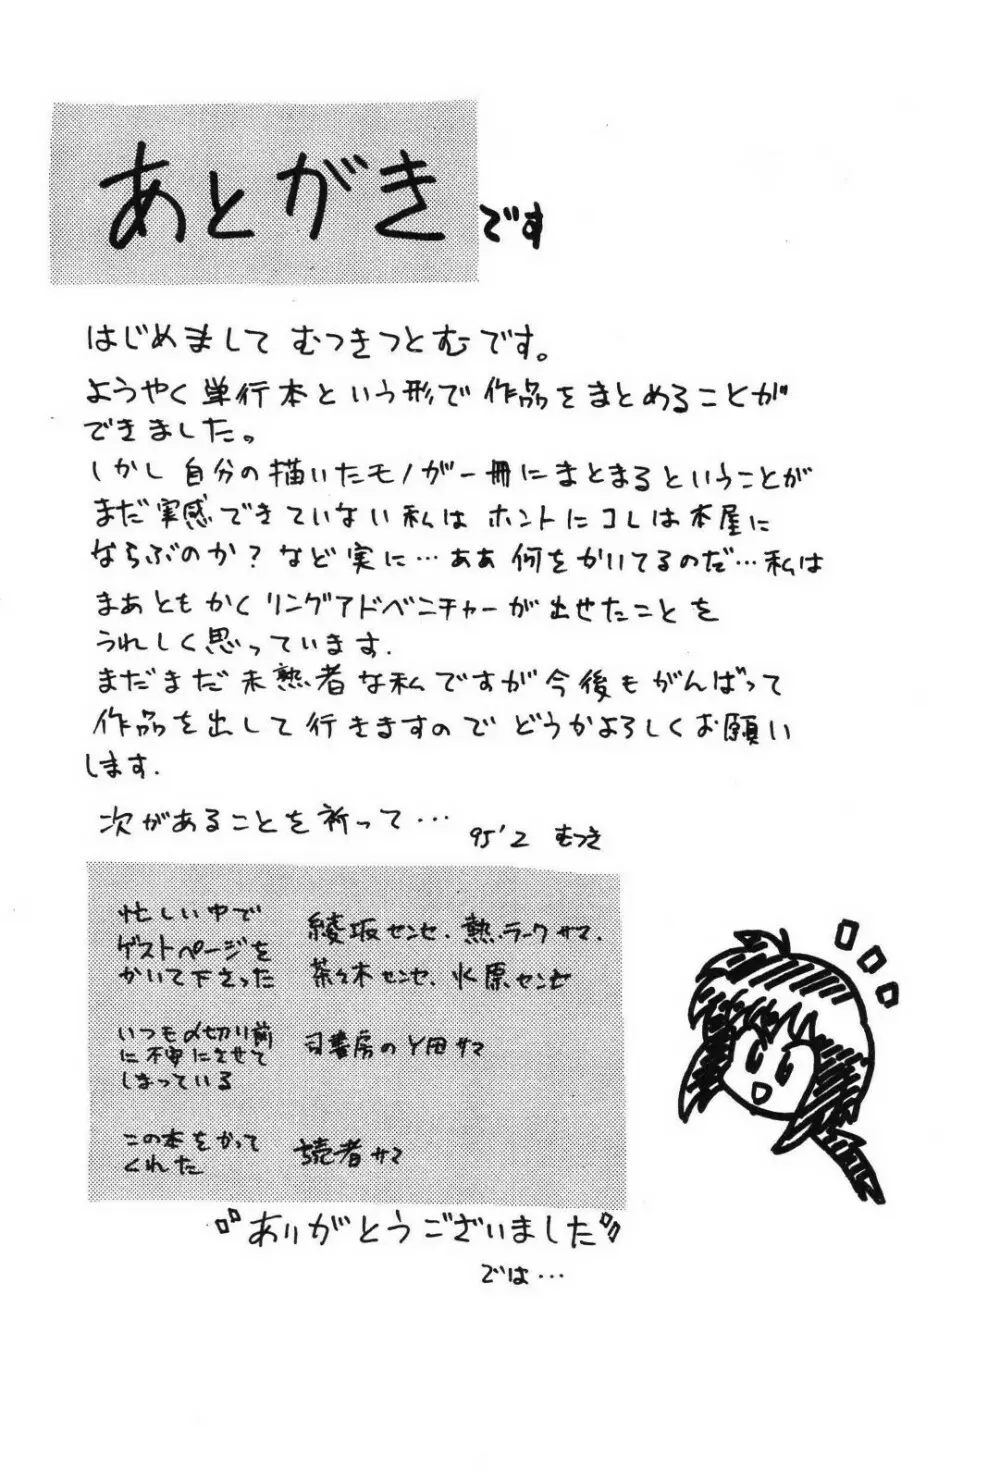 あとがきです
はじめまして むつきつとむです。
ようやく単行本という形で作品をまとめることが
できました。
しかし自分の描いたモノが一冊にまとまるということが
まだ実感できていない私は ホントにコレは本屋に
ならぶのか?など実に…ああ何をかいてるのだ…私は
まあともかくリングアドベンチャーが出せたことを
うれしく思っています.
まだまだ未熟者な私ですが今後もがんばって
作品を出して行きますので どうかよろしくお願い
します.
次があることを祈って…
95'2 むつき
忙しい中で
ゲストページを
かいて下さった
綾坂センセ、熱.ラークサマ、
茶々木センセ、水原センセ
いつも〆切り前
に不安にさせて
しまっている
司書房のY田サマ
この本をかって
くれた
読者サマ
ありがとうございました
では…